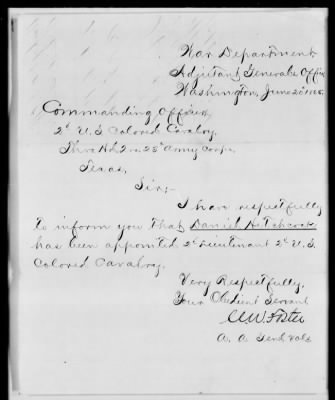 War Department
Adjutant Generals Office
Washington, June 20" 1865.
Commanding Officer
2d U.S. Colored Cavalry,
Thro Hd Qrs 25" Army Corps,
Texas,
Sir;-
I have respectfully
to inform you that Daniel Hitchcock
has been appointed 2d Lieutenant 2d U.S.
Colored Cavalry.
Very Respectfully,
Your Obedient Servant
C W Foster
A. A. Genl Vols